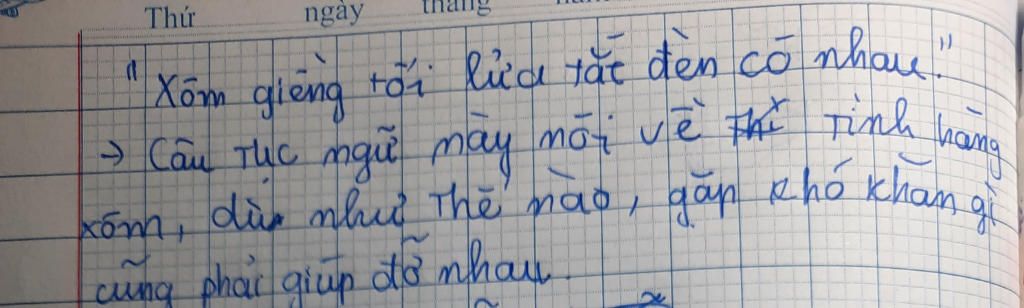 Thứ ngày tháng
"Xóm giềng tối lửa tắt đèn có nhau."
→ Câu tục ngữ này nói về tình hàng
xóm, dù như thế nào, gặp khó khăn gì
cũng phải giúp đỡ nhau.